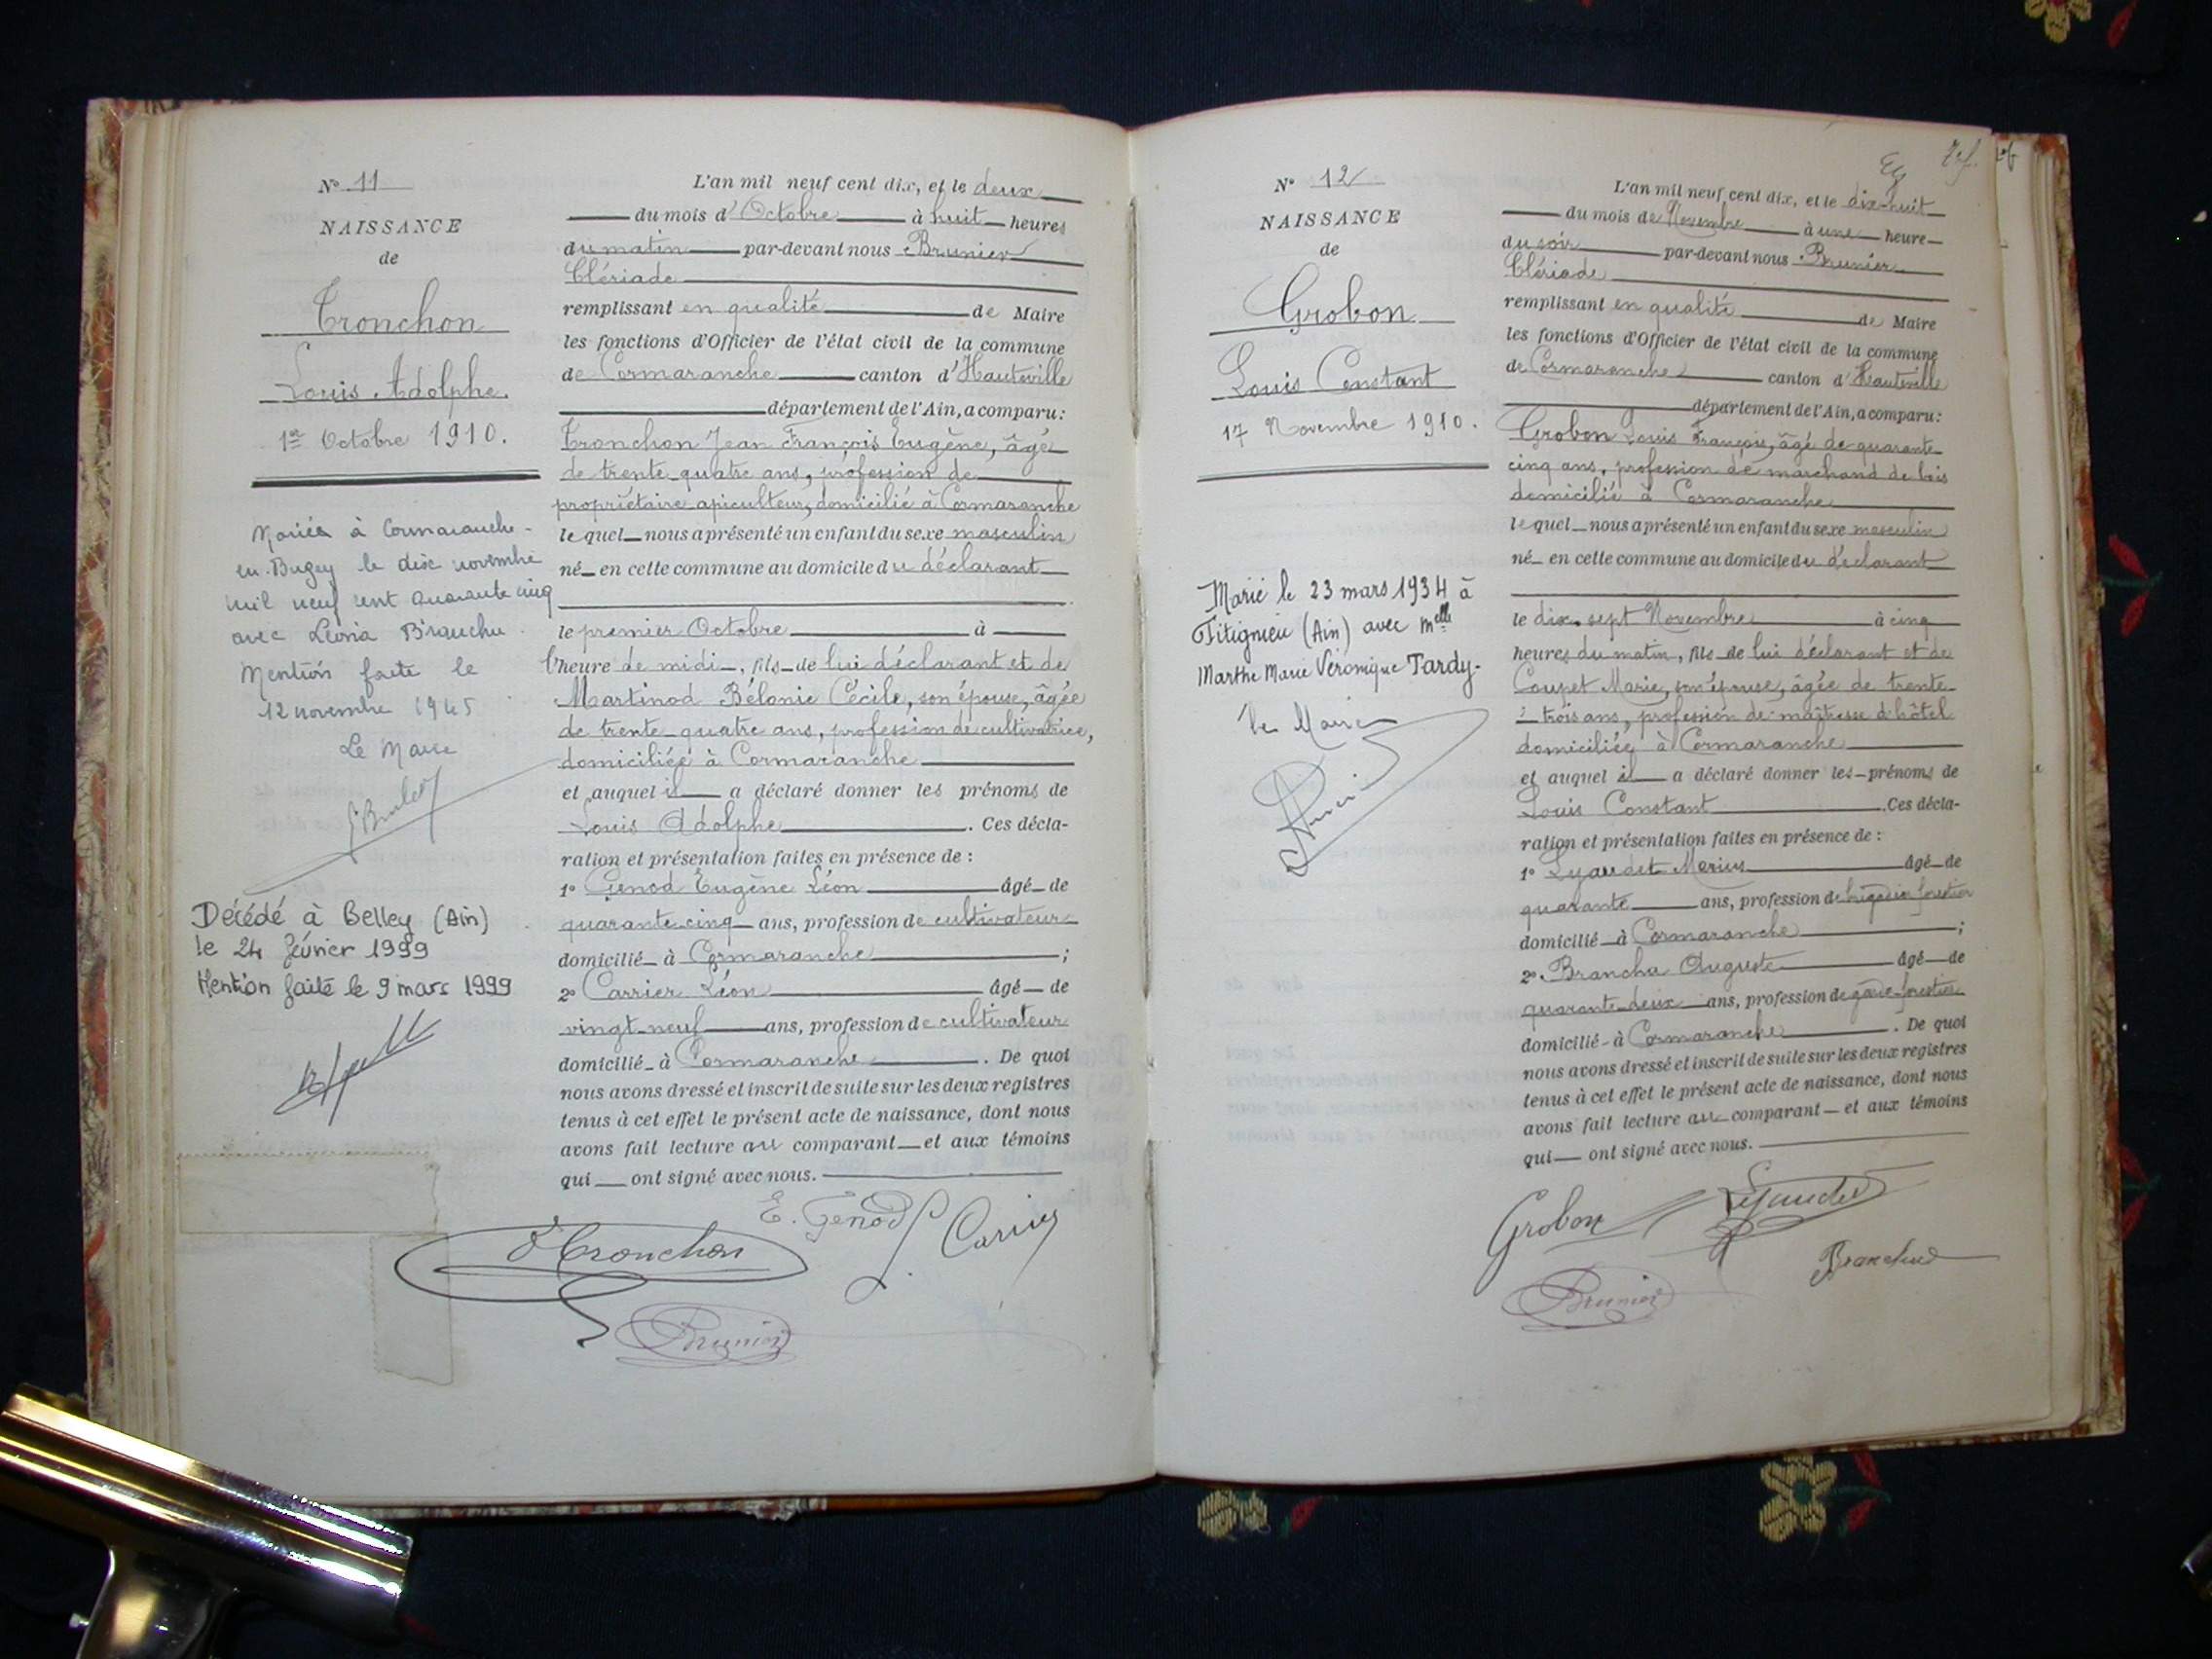 N° 11
NAISSANCE
de
Tronchon
Louis Adolphe.
1er Octobre 1910.
Mariés à Cormaranche-
en-Bugey le dix novembre
mil neuf cent quarante cinq
avec Léonia
Mention faite le
12 novembre 1945
Le Maire
Décédé à Belley (Ain)
le 24 février 1999
Mention faite le 9 mars 1999
L'an mil neuf cent dix, et le deux
du mois d'Octobre à huit heures
du matin par-devant nous Brunier
Clériade
remplissant en qualité de Maire
les fonctions d'Officier de l'état civil de la commune
de Cormaranche canton d'Hauteville
département de l'Ain, a comparu :
Tronchon Jean François Eugène, âgé
de trente quatre ans, profession de
propriétaire apiculteur, domicilié à Cormaranche
lequel nous a présenté un enfant du sexe masculin
né en cette commune au domicile du déclarant
le premier Octobre à
l'heure de midi, fils de lui déclarant et de
Martinod Bélonie Cécile, son épouse, âgée
de trente-quatre ans, profession de cultivatrice,
domiciliée à Cormaranche
et auquel il a déclaré donner les prénoms de
Louis Adolphe. Ces décla-
ration et présentation faites en présence de :
1° Genod Eugène Léon âgé de
quarante-cinq ans, profession de cultivateur
domicilié à Cormaranche ;
2° Carrier Léon âgé de
vingt-neuf ans, profession de cultivateur
domicilié à Cormaranche. De quoi
nous avons dressé et inscrit de suite sur les deux registres
tenus à cet effet le présent acte de naissance, dont nous
avons fait lecture au comparant et aux témoins
qui ont signé avec nous.
E. Genod
Carrier
Tronchon
Brunier
N° 12
NAISSANCE
de
Grobon
Louis Constant
17 Novembre 1910.
Marié le 23 mars 1934 à
(Ain) avec Melle
Marthe Marie Véronique Tardy.
Le Maire
L'an mil neuf cent dix, et le dix-huit
du mois de Novembre à une heure
du soir par-devant nous Brunier
Clériade
remplissant en qualité de Maire
les fonctions d'Officier de l'état civil de la commune
de Cormaranche canton d'Hauteville
département de l'Ain, a comparu :
Grobon Louis François, âgé de quarante
cinq ans, profession de marchand de bois
domicilié à Cormaranche
lequel nous a présenté un enfant du sexe masculin
né en cette commune au domicile du déclarant
le dix-sept Novembre à cinq
heures du matin, fils de lui déclarant et de
Coupet Marie, son épouse, âgée de trente
trois ans, profession de maîtresse d'hôtel
domiciliée à Cormaranche
et auquel il a déclaré donner les prénoms de
Louis Constant. Ces décla-
ration et présentation faites en présence de :
1° Lyaudet Marius âgé de
quarante ans, profession de brigadier forestier
domicilié à Cormaranche ;
2° Brancha Auguste âgé de
quarante-deux ans, profession de garde-forestier
domicilié à Cormaranche. De quoi
nous avons dressé et inscrit de suite sur les deux registres
tenus à cet effet le présent acte de naissance, dont nous
avons fait lecture au comparant et aux témoins
qui ont signé avec nous.
Grobon
Lyaudet
Brunier